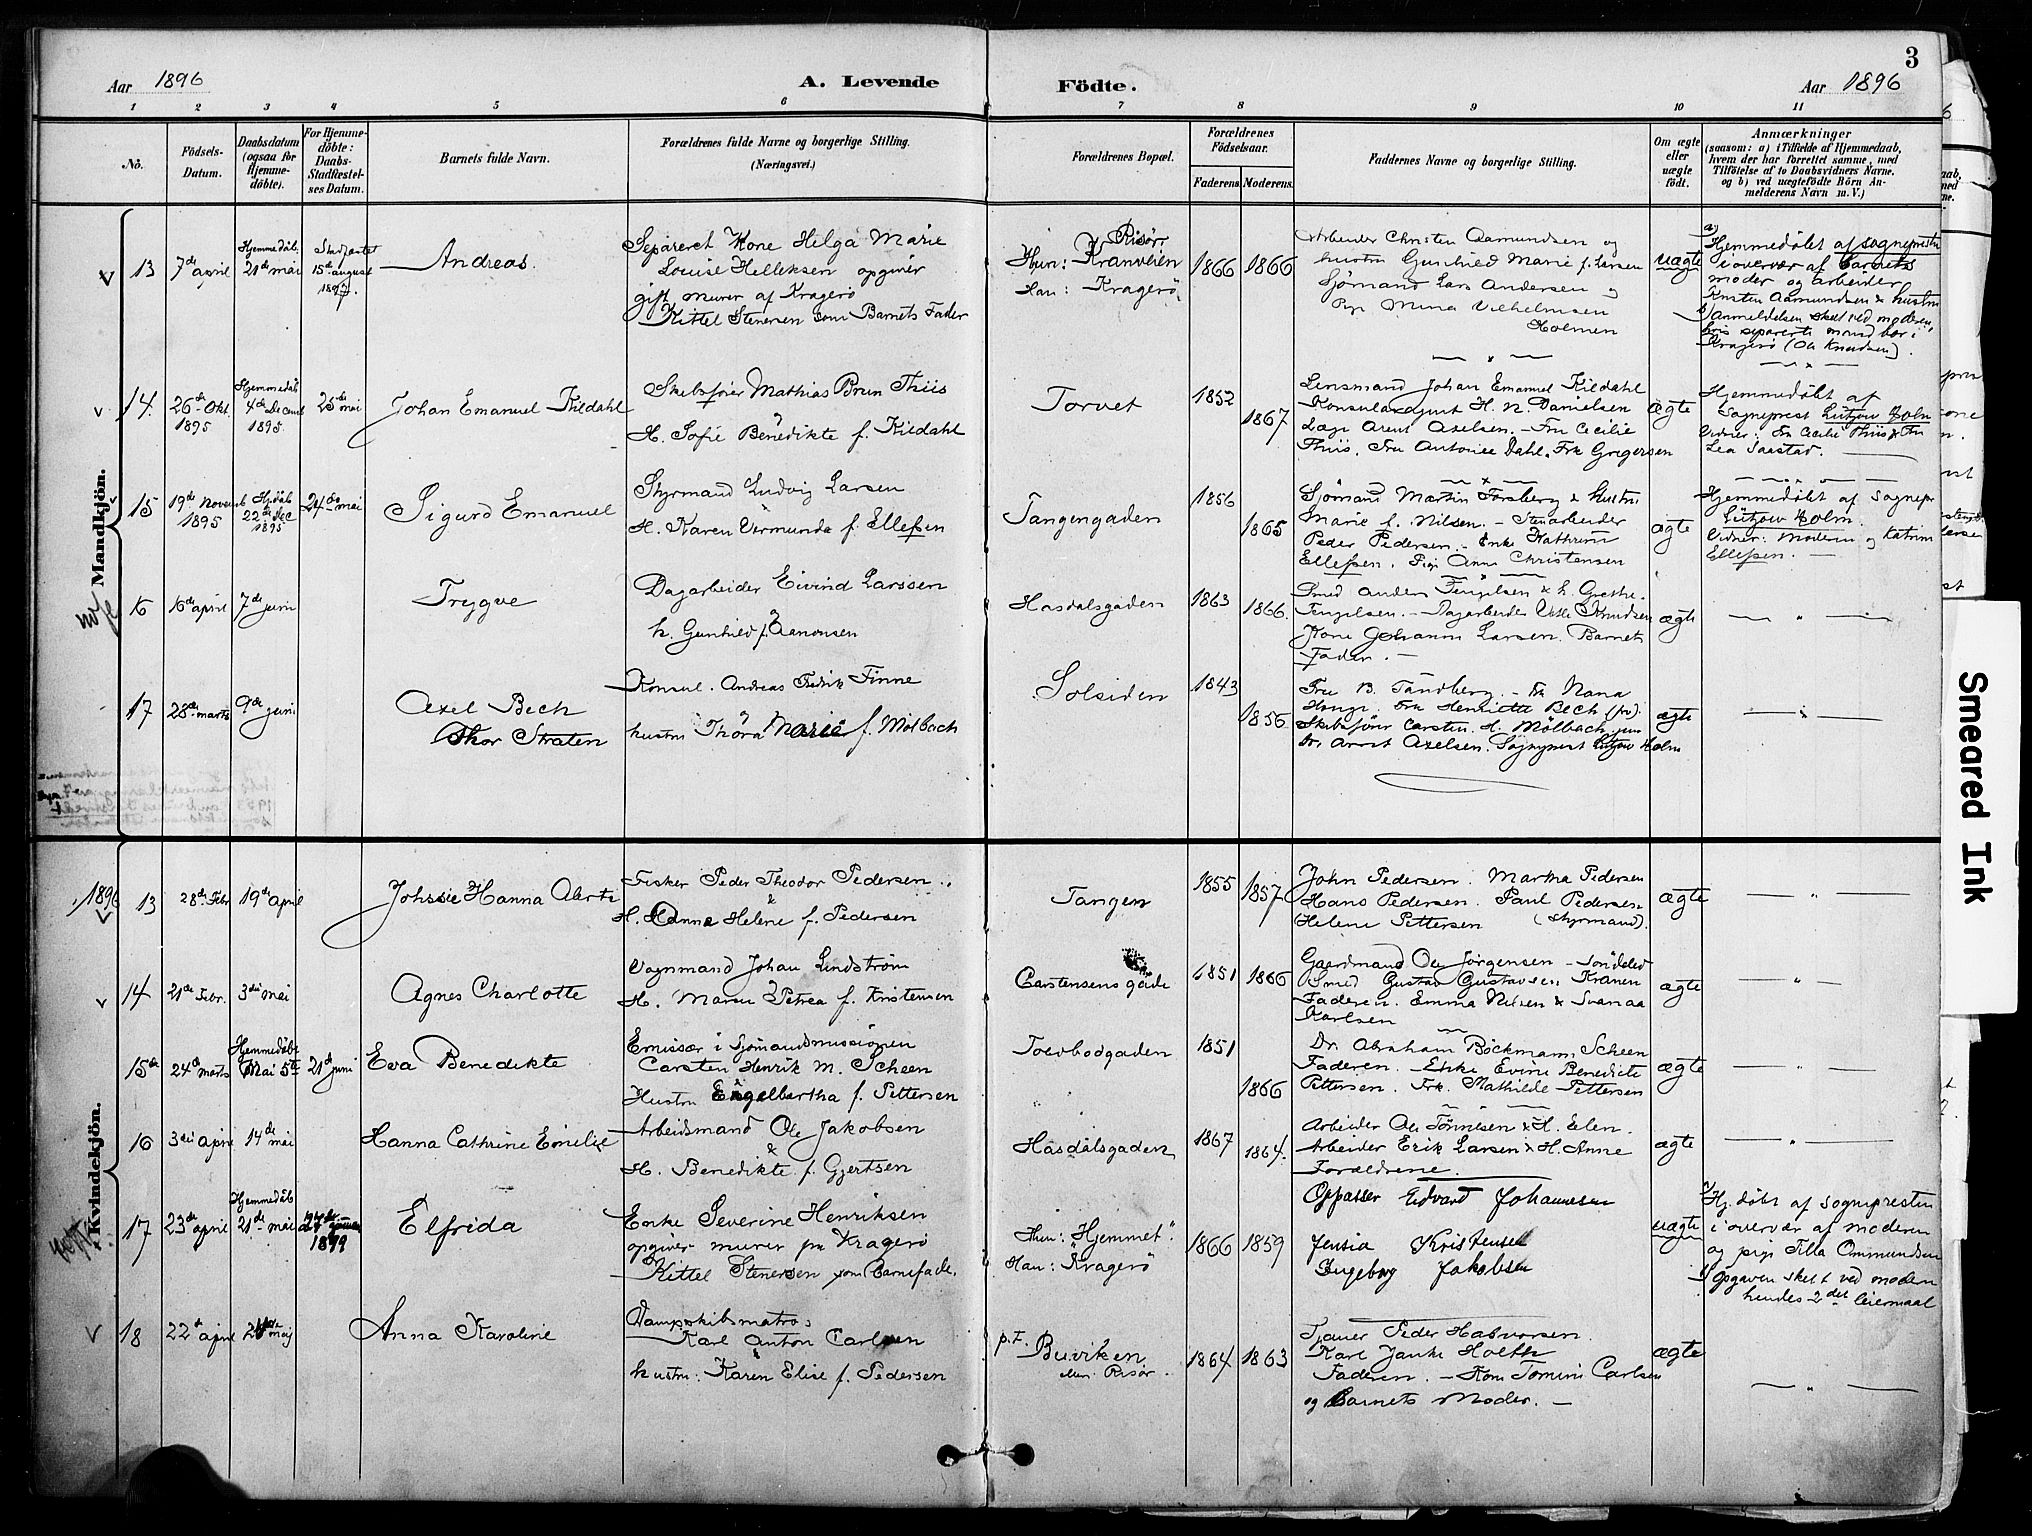 3
Aar 1896
A. Levende
Födte.
Aar 1896
1 2 3 4 5 6 7 8 9 10 11
No.
Födsels-
Datum.
Daabsdatum
(ogsaa for
Hjemme-
döbte).
For Hjemme-
döbte:
Daabs-
Stadfæstel-
ses Datum.
Barnets fulde Navn.
Forældrenes fulde Navne og borgerlige Stilling.
(Næringsvei.)
Forældrenes Bopæl.
Forældrenes
Födselsaar.
Faderens. Moderens.
Faddernes Navne og borgerlige Stilling.
Om ægte
eller
uægte
födt.
Anmærkninger
(saasom: a) i Tilfælde af Hjemmedaab,
hvem der har forrettet samme, med
Tilföielse af to Daabsvidners Navne.
og b) ved uægtefödte Börn An-
melderens Navn m. V.)
Mandkjön.
13
7de april
Hjemmedåb.
21de mai
Stadfæstet
15de august
Andreas.
Separeret Kone Helga Marie
Louise Helleksen opgiver
gift murer af Kragerø
Kittel Stenersen som Barnets Fader
Risør
Hun: Kranvlien
Han: Kragerø
1866
1866
Arbeider Christen Aamundsen og
hustru Gunhild Marie f. Larsen
Sjømand Lars Andersen og
Pige Mina Vilhelmsen
Holmen
uægte
a)
Hjemmedåbt af sogneprestn
i overvær af barnets
moder og arbeider
Kristen Aamundsen & hustru
b) Anmeldelsen skeet ved moderen,
hvis separerte mand bor i
Kragerø (Ole Knudsen).
14.
26de Okt.
1895
Hjemmedåb
4de Decemb
1895.
25de mai
Johan Emanuel Kildahl
Skibsfører Mathias Brun Thiis
&
H. Sofie Benedikte f. Kildahl
Torvet
1852
1867
Lensmand Johan Emanuel Kildahl
Konsul H. N. Danielsen
Læge Arent Axelsen. - Fru Cecilie
Thiis. Fru Antonie Dahl. Frk Gregersen
ægte
Hjemmedåbt af
Sogneprest Lützow Holm
Vidner: Fru Cecilie Thiis & Fru
Lea Saastad.
15
19de Novemb
1895
Hjdåb
22de Dec
1895
24de mai
Sigurd Emanuel
Styrmand Ludvig Larsen
H. Karen Vermunda f. Ellefsen
Tangengaden
1856
1865
Sjømand Martin Forsberg & hustru
Marie f. Nilsen. - Stenarbeider
Peder Pedersen. - Enke Kathrine
Ellefsen. Pige Anna Christensen
ægte
Hjemmedåbt af sognepr
Lützow Holm.
Vidner: Moderen og Katrine
Ellefsen.
16
16de april
7de juni
Trygve
Dagarbeider Eivind Larssen
&
h. Gunhild f. Aanonsen
Hasdalsgaden
1863
1866.
Smed Anders Tengelsen & h. Grethe
Tengelsen. - Dagarbeider Knudsen
Kone Johanne Larsen. Barnets
Fader.
ægte
17
28de marts
9de juni
Axel Bech
Thor Straten
Konsul. Andreas Fredrik Finne
&
hustru Thora Marie f. Mölbach
Solsiden
1843
1856
Fru B. Tandberg. - Fr. Nana
Fr. Henriette Bech
Skibsfører Carsten H. Mølbach jun
Dr. Arent Axelsen. Sogneprest Lützow Holm
ægte
Kvindekjön.
1896
13
28de Febr
19de april
Johssie Hanna Alerte
Fisker Peder Theodor Pedersen
&
H. Hanna Helene f. Pedersen
Tangen
1855
1857
John Pedersen. Martha Pedersen
Hans Pedersen. Paul Pedersen
Helene Pettersen (styrmand).
ægte
14
21de Febr.
3die mai
Agnes Charlotte
Vognmand Johan Lindström
&
H. Maren Petrea f. Kristensen
Carstensensgade
1851
1866
Gaardmand Ole Jörgensen - Söndeled
Smed Gustav Gustavsen Kranen
Faderen. Emma Nilsen & Svanaa
Karlsen
ægte
15de
24de marts
Hjemmedåbt
Mai 5te
21de juni
Eva Benedikte
Emissær i Sjømandsmissionen
Carsten Henrik M. Scheen
&
Hustru Engelbertha f. Pettersen
Toldbodgaden
1851
1866
Dr. Abraham Böckmann Scheen
Faderen. - Enke Evine Benedicte
Pettersen. Frk. Mathilde Pettersen
ægte
16
3die april
14de mai
Hanna Cathrine Emelie
Arbeidsmand Ole Jakobsen
&
H. Benedikte f. Gjertsen
Hasdalsgaden
1867
1864.
Arbeider Ole Tönnesen & H. Elen.
Arbeider Erik Larsen & H. Anne
Forældrene.
ægte
17
23de april
Hjemmedåb
21de mai
1899
Elfrida
Enke Severine Henriksen
opgiver murer fra Kragerø
Kittel Stenersen som Barnefader.
Hun: "Hjemmet"
Han: Kragerø
1866
1859
Oppasser Edvard Johannesen
Jensia Kristensen
Ingeborg Jakobsen
uægte
a) Hj.dåbt af sognepresten
i overvær af moderen
og pige Tilla Ommundsen
b) Opgaven skeet ved modern
hendes 2det leiermaal
18
22de april
mai
Anna Karoline
Dampskibsmatros
Karl Anton Carlsen
&
hustru: Karen Elise f. Pedersen
p.t.
Buviken
Risør.
1864
1863
Peder Halvorsen.
Karl Janke Holth
Faderen. - Kone Tomine Carlsen
og Barnets Moder.
ægte
Smeared Ink